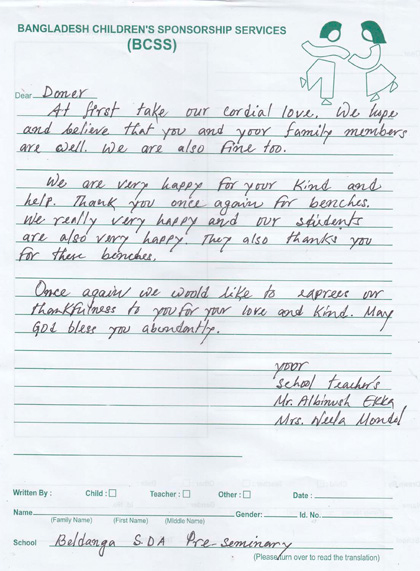 BANGLADESH CHILDREN'S SPONSORSHIP SERVICES
(BCSS)
Dear Doner
At first take our cordial love. We hope
and believe that you and your family members
are well. We are also fine too.
We are very happy for your kind and
help. Thank you once again for benches.
We really very happy and our students
are also very happy. They also thanks you
for these benches.
Once again we would like to express our
thankfulness to you for your love and kind. May
God bless you abundantly.
your
School teacher's
Mr. Albinush Ekka
Mrs. Neela Mondal
Written By : Child : Teacher : Other : Date :
Name Gender: Id. No
(Family Name) (First Name) (Middle Name)
School Beldanga SDA Pre-seminary
(Please turn over to read the translation)